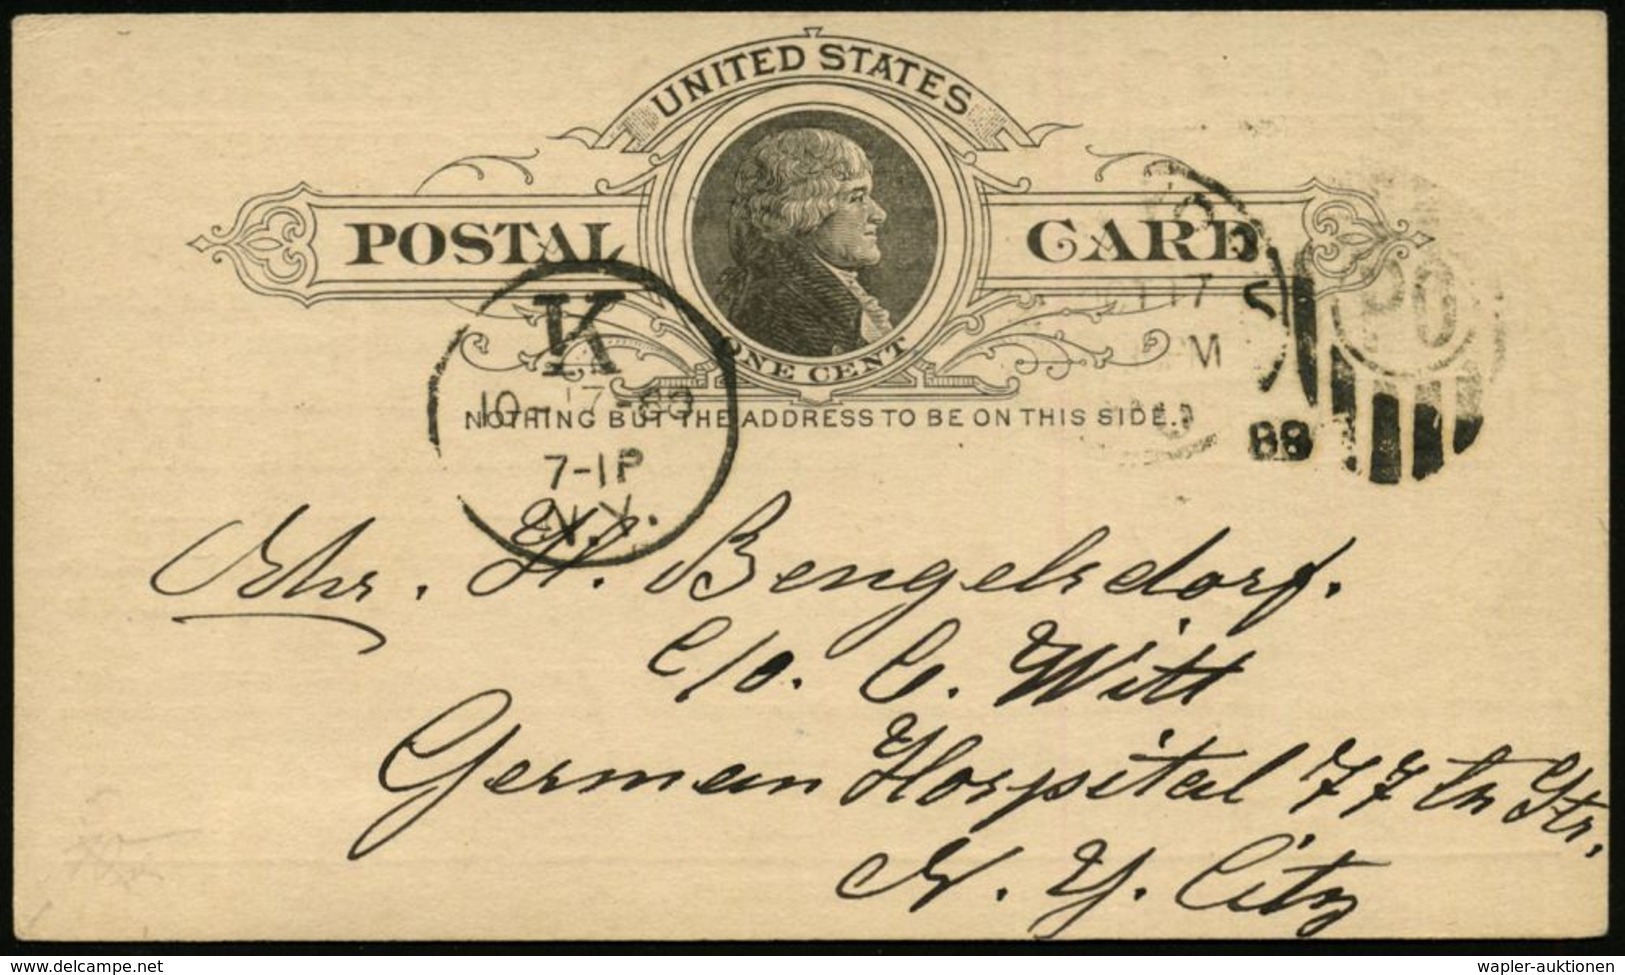 UNITED STATES
POSTAL CARD
ONE CENT
NOTHING BUT THE ADDRESS TO BE ON THIS SIDE.
K
10-17-88
7-1P
N.Y.
17
M
88
PO
Mr. H. Bengelsdorf.
C/o. C. Witt
German Hospital 77th Str.
N. Y. City
www.delcampe.net
wapler-auktionen